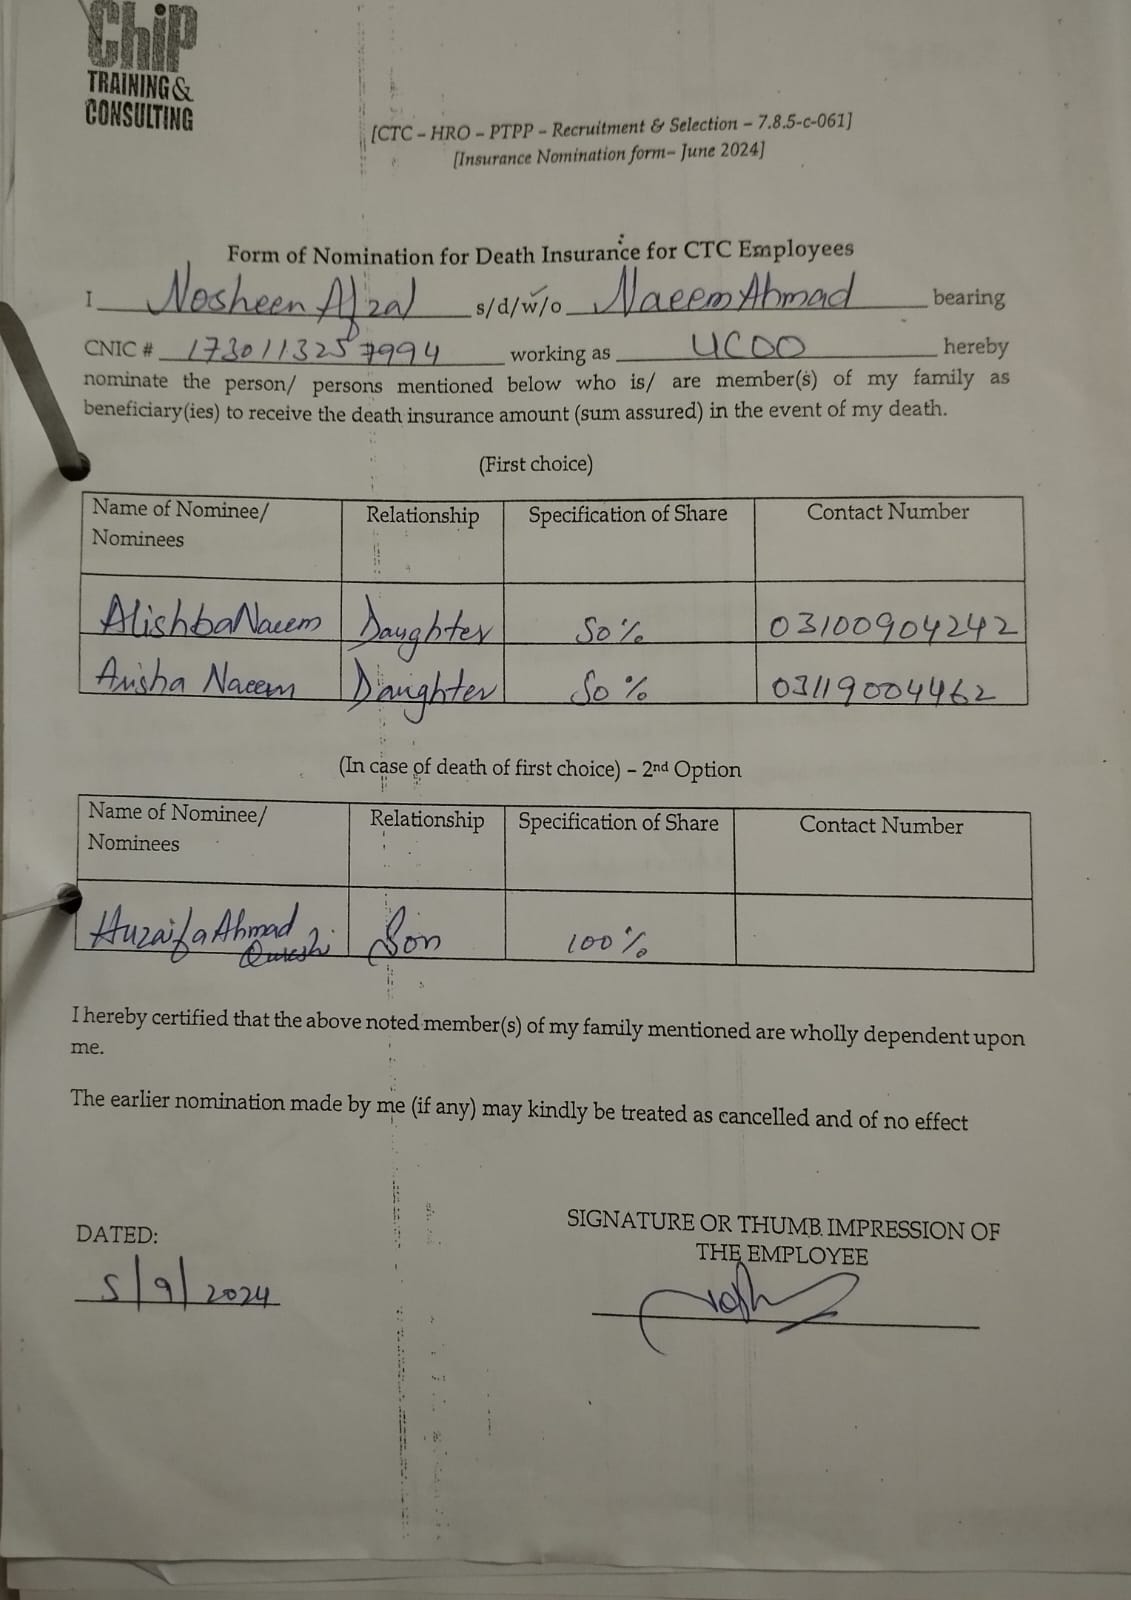 ChiP
TRAINING &
CONSULTING
[CTC – HRO – PTPP – Recruitment & Selection – 7.8.5-c-061]
[Insurance Nomination form– June 2024]
Form of Nomination for Death Insurance for CTC Employees
I Nosheen Afzal s/d/w/o Naeem Ahmad bearing
CNIC # 1730113257994 working as UCOO hereby
nominate the person/ persons mentioned below who is/ are member(s) of my family as
beneficiary(ies) to receive the death insurance amount (sum assured) in the event of my death.
(First choice)
Name of Nominee/ Relationship Specification of Share Contact Number
Nominees
Alishba Naeem Daughter 50% 03100904242
Anisha Naeem Daughter 50% 03119004462
(In case of death of first choice) – 2nd Option
Name of Nominee/ Relationship Specification of Share Contact Number
Nominees
Huzaifa Ahmad Son 100%
Qureshi
I hereby certified that the above noted member(s) of my family mentioned are wholly dependent upon
me.
The earlier nomination made by me (if any) may kindly be treated as cancelled and of no effect
SIGNATURE OR THUMB IMPRESSION OF
DATED: THE EMPLOYEE
5/9/2024